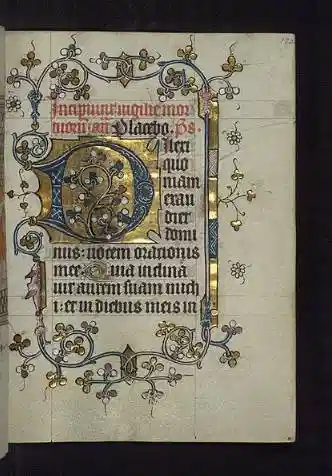 Incipiunt vigilie mor
tuorum. añ Placebo. Ps.
Dilexi
quo
niam
exau
diet
domi
nus: vocem orationis
mee. Quia inclina
uit aurem suam mich
i: et in diebus meis in